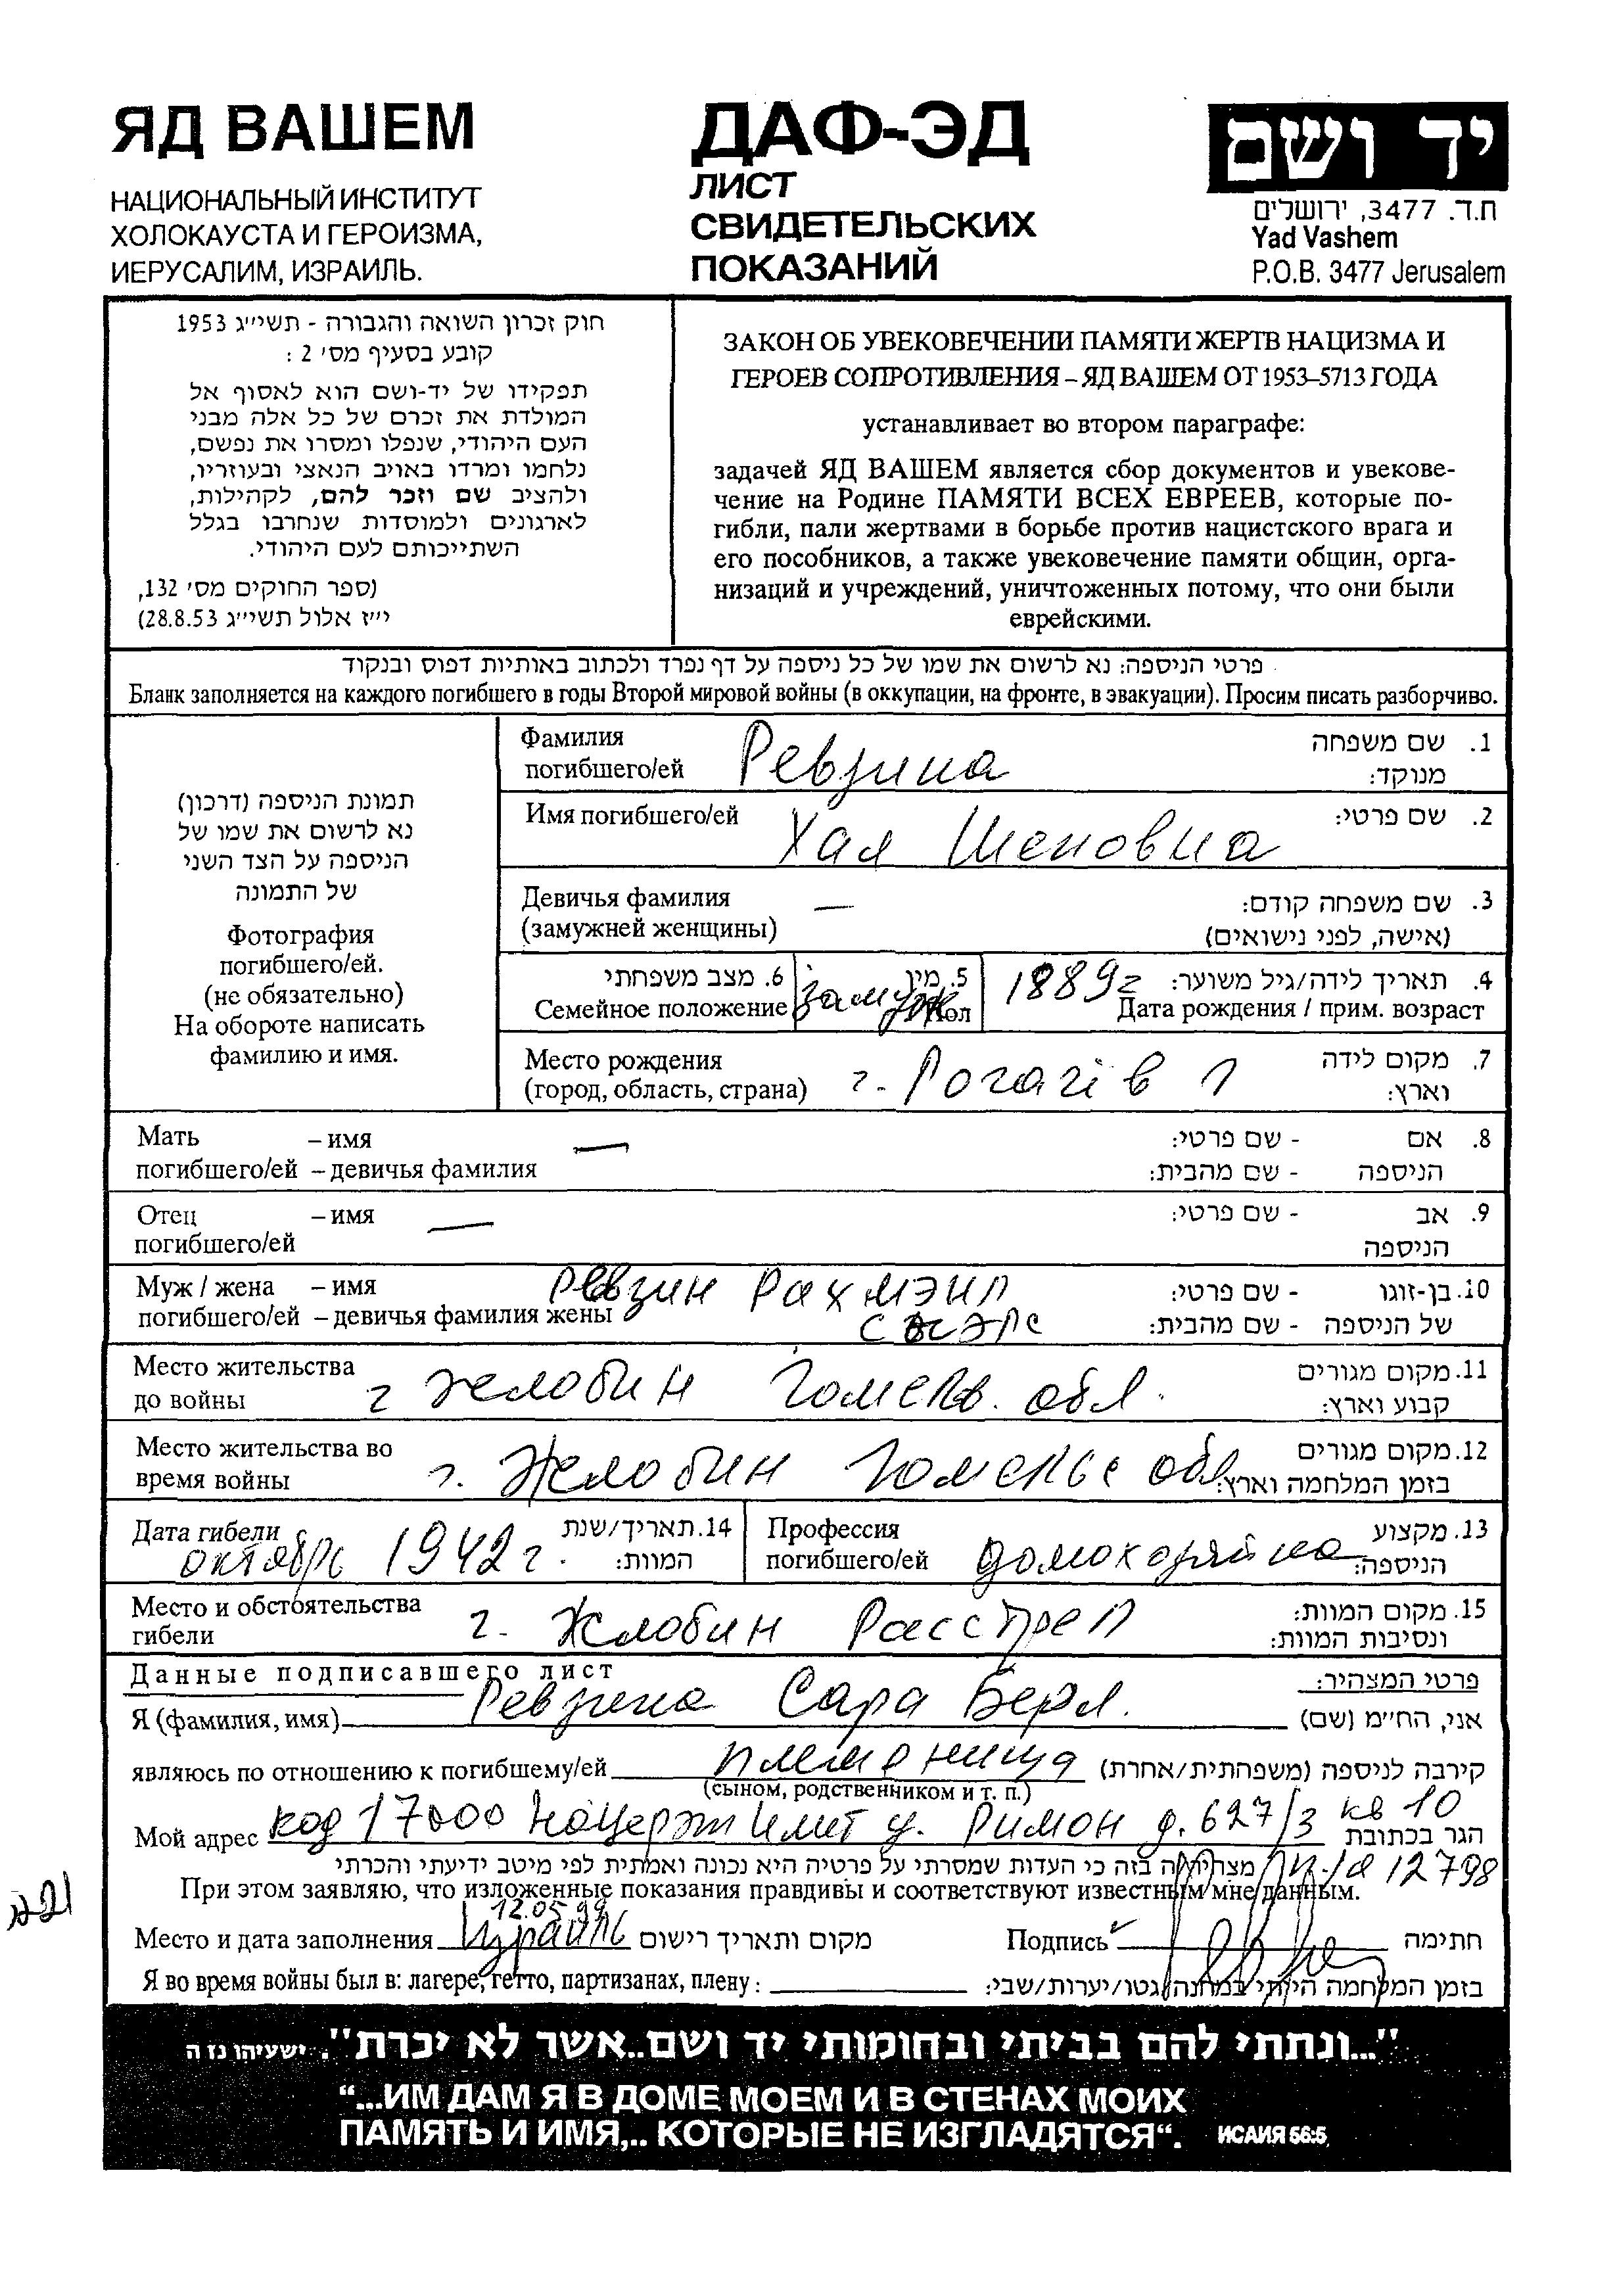 ЯД ВАШЕМ
НАЦИОНАЛЬНЫЙ ИНСТИТУТ
ХОЛОКАУСТА И ГЕРОИЗМА,
ИЕРУСАЛИМ, ИЗРАИЛЬ.
ДАФ-ЭД
ЛИСТ
СВИДЕТЕЛЬСКИХ
ПОКАЗАНИЙ
יד ושם
ת.ד. 3477, ירושלים
Yad Vashem
P.O.B. 3477 Jerusalem
חוק זכרון השואה והגבורה - תשי״ג 1953
קובע בסעיף מס׳ 2 :
תפקידו של יד-ושם הוא לאסוף אל
המולדת את זכרם של כל אלה מבני
העם היהודי, שנפלו ומסרו את נפשם,
נלחמו ומרדו באויב הנאצי ובעוזריו,
ולהציב שם וזכר להם, לקהילות,
לארגונים ולמוסדות שנחרבו בגלל
השתייכותם לעם היהודי.
(ספר החוקים מס׳ 132,
י״ז אלול תשי״ג 28.8.53)
ЗАКОН ОБ УВЕКОВЕЧЕНИИ ПАМЯТИ ЖЕРТВ НАЦИЗМА И
ГЕРОЕВ СОПРОТИВЛЕНИЯ – ЯД ВАШЕМ ОТ 1953–5713 ГОДА
устанавливает во втором параграфе:
задачей ЯД ВАШЕМ является сбор документов и увекове-
чение на Родине ПАМЯТИ ВСЕХ ЕВРЕЕВ, которые по-
гибли, пали жертвами в борьбе против нацистского врага и
его пособников, а также увековечение памяти общин, орга-
низаций и учреждений, уничтоженных потому, что они были
еврейскими.
פרטי הניספה: נא לרשום את שמו של כל ניספה על דף נפרד ולכתוב באותיות דפוס ובנקוד
Бланк заполняется на каждого погибшего в годы Второй мировой войны (в оккупации, на фронте, в эвакуации). Просим писать разборчиво.
תמונת הניספה (דרכון)
נא לרשום את שמו של
הניספה על הצד השני
של התמונה
Фотография
погибшего/ей.
(не обязательно)
На обороте написать
фамилию и имя.
Фамилия 1. שם משפחה
погибшего/ей Ревзина מנוקד:
Имя погибшего/ей Хая 2. שם פרטי:
Девичья фамилия — 3. שם משפחה קודם:
(замужней женщины) (אישה, לפני נישואים)
6. מצב משפחתי 5. מין 1889г 4. תאריך לידה/גיל משוער:
Семейное положение замуж Пол Дата рождения / прим. возраст
Место рождения 7. מקום לידה
(город, область, страна) г. Рогачів וארץ:
Мать – имя — 8. אם - שם פרטי:
погибшего/ей – девичья фамилия הניספה - שם מהבית:
Отец – имя — 9. אב - שם פרטי:
погибшего/ей הניספה
Муж / жена – имя Ревзин Рахмэил 10. בן-זוגו - שם פרטי:
погибшего/ей – девичья фамилия жены של הניספה - שם מהבית:
Место жительства 11. מקום מגורים
до войны г Жлобин Гомельв. обл. קבוע וארץ:
Место жительства во 12. מקום מגורים
время войны г. Жлобин Гомельс обл בזמן המלחמה וארץ:
Дата гибели 14. תאריך/שנת
октябрь 1942 г. המוות:
Профессия 13. מקצוע
погибшего/ей домохозяйка הניספה:
Место и обстоятельства 15. מקום המוות:
гибели г. Жлобин Расстрел ונסיבות המוות:
Данные подписавшего лист פרטי המצהיר:
Я (фамилия, имя) Ревзина Сара Берл. אני, הח״מ (שם)
являюсь по отношению к погибшему/ей племеница קירבה לניספה (משפחתית/אחרת)
(сыном, родственником и т. п.)
Мой адрес код 17000 Нацерэт Илит у. Римон д. 627/3 кв 10 הגר בכתובת
מצהיר/ה בזה כי העדות שמסרתי על פרטיה היא נכונה ואמתית לפי מיטב ידיעתי והכרתי 12798
При этом заявляю, что изложенные показания правдивы и соответствуют известным мне данным.
12.05.99
Место и дата заполнения Израиль מקום ותאריך רישום Подпись חתימה
Я во время войны был в: лагере, гетто, партизанах, плену: בזמן המלחמה הייתי במחנה/גטו/יערות/שבי:
"...ונתתי להם בביתי ובחומותי יד ושם..אשר לא יכרת". ישעיהו נז ה
“...ИМ ДАМ Я В ДОМЕ МОЕМ И В СТЕНАХ МОИХ
ПАМЯТЬ И ИМЯ,.. КОТОРЫЕ НЕ ИЗГЛАДЯТСЯ“. ИСАИЯ 56:5